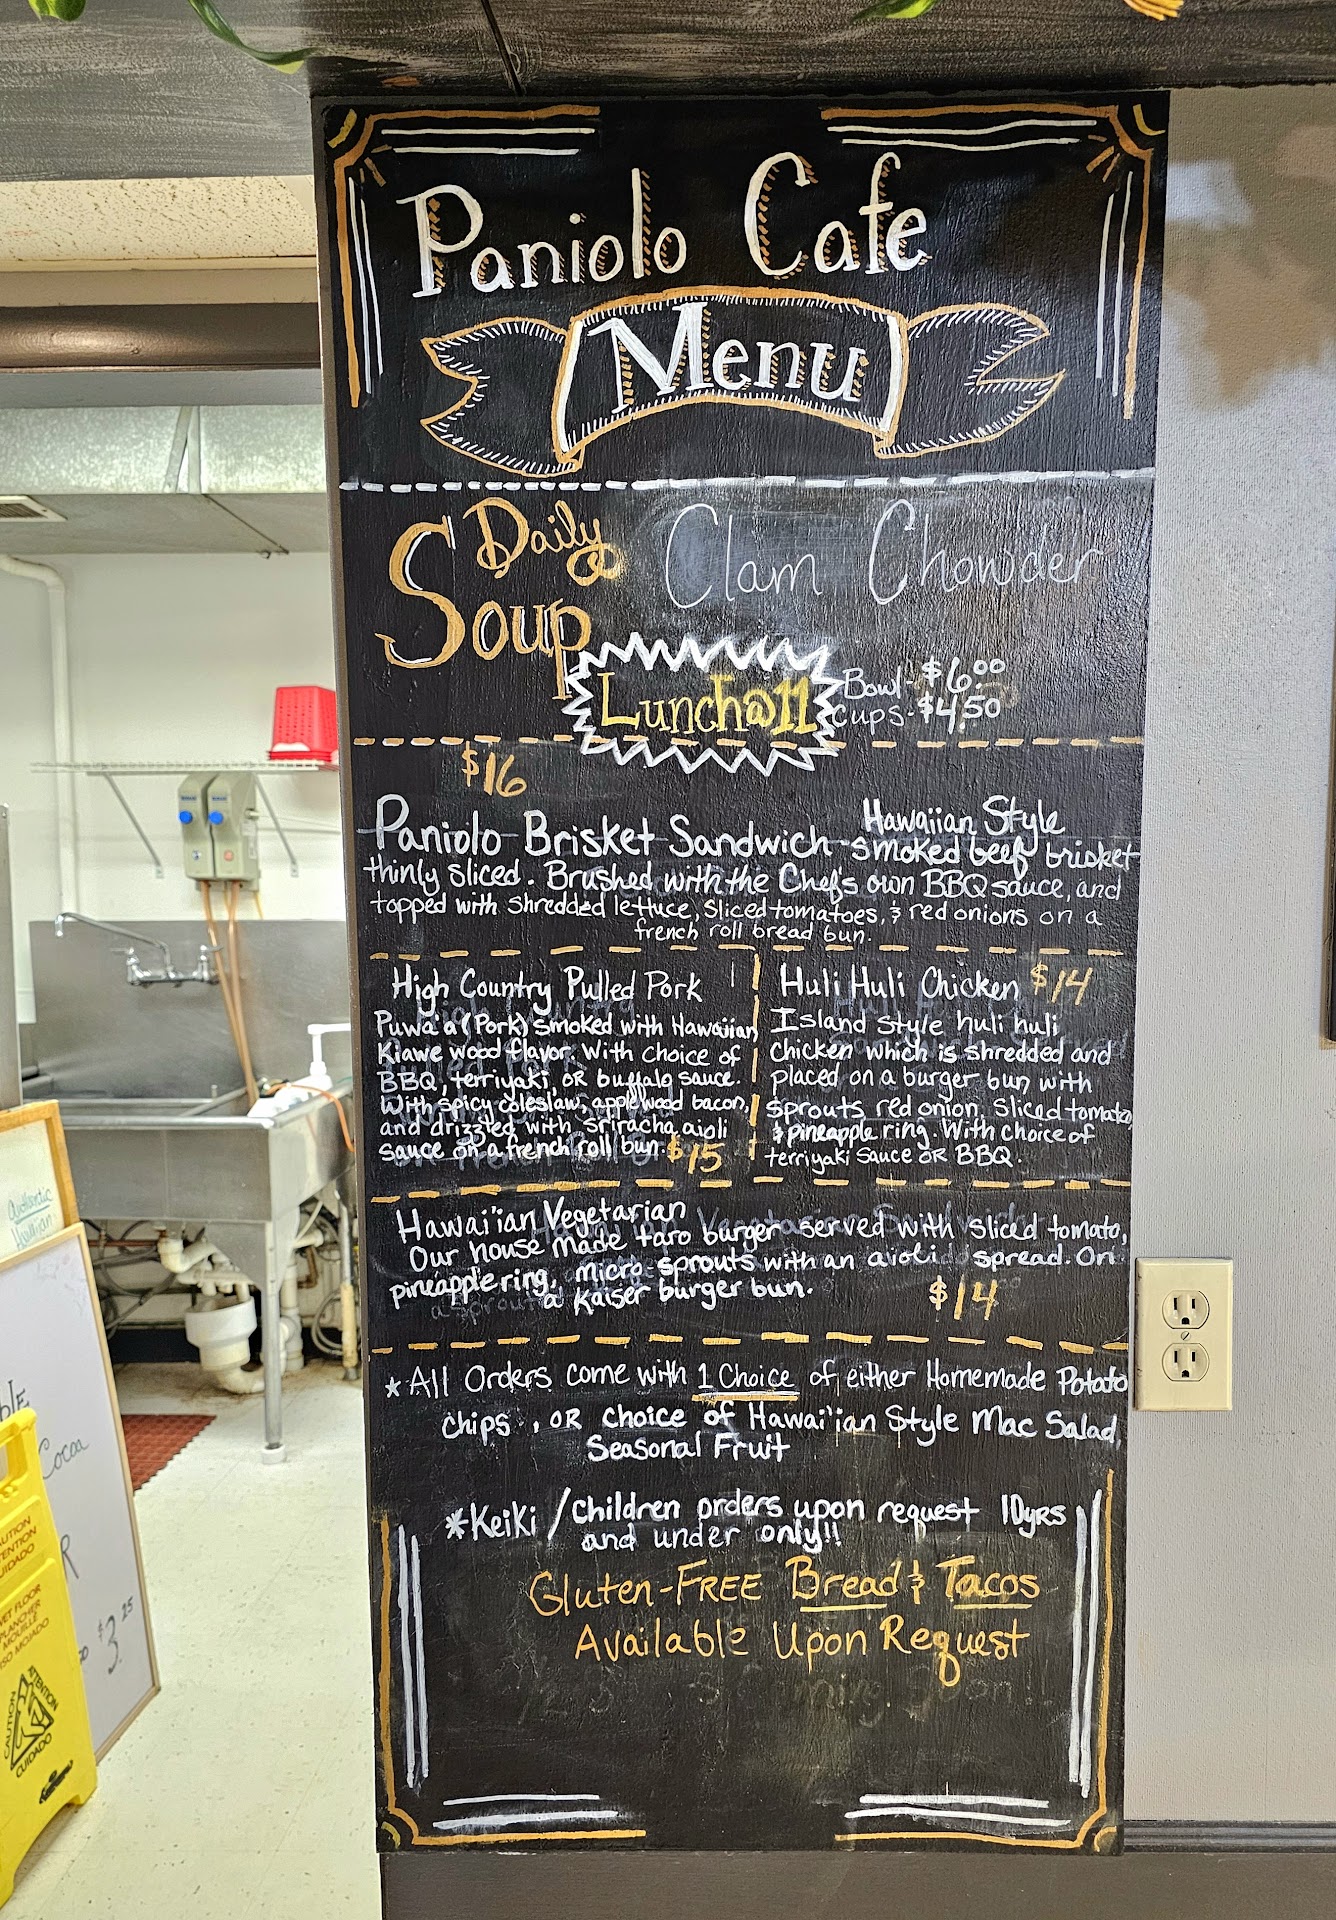 Paniolo Cafe
Menu
Daily
Soup
Clam Chowder
Lunch@11
Bowl-$6.00
Cups-$4.50
$16
Paniolo Brisket Sandwich-Hawaiian Style
smoked beef brisket
thinly sliced. Brushed with the Chef's own BBQ sauce, and
topped with shredded lettuce, sliced tomatoes, & red onions on a
french roll bread bun.
High Country Pulled Pork
Puwa'a (Pork) smoked with Hawaiian
Kiawe wood flavor. With choice of
BBQ, terriyaki, OR buffalo sauce.
With spicy coleslaw, applewood bacon,
and drizzled with sriracha aioli
sauce on a french roll bun. $15
Huli Huli Chicken $14
Island style huli huli
chicken which is shredded and
placed on a burger bun with
sprouts, red onion, sliced tomato,
& pineapple ring. With choice of
terriyaki sauce OR BBQ.
Hawai'ian Vegetarian
Our house made taro burger served with sliced tomato,
pineapple ring, micro-sprouts with an aioli spread. On
a Kaiser burger bun. $14
*All Orders come with 1 Choice of either Homemade Potato
chips, OR choice of Hawai'ian Style Mac Salad,
Seasonal Fruit
*Keiki/children orders upon request 10yrs
and under only!!
Gluten-FREE Bread & Tacos
Available Upon Request
Authentic
Cocoa
$3.25
CAUTION
CUIDADO